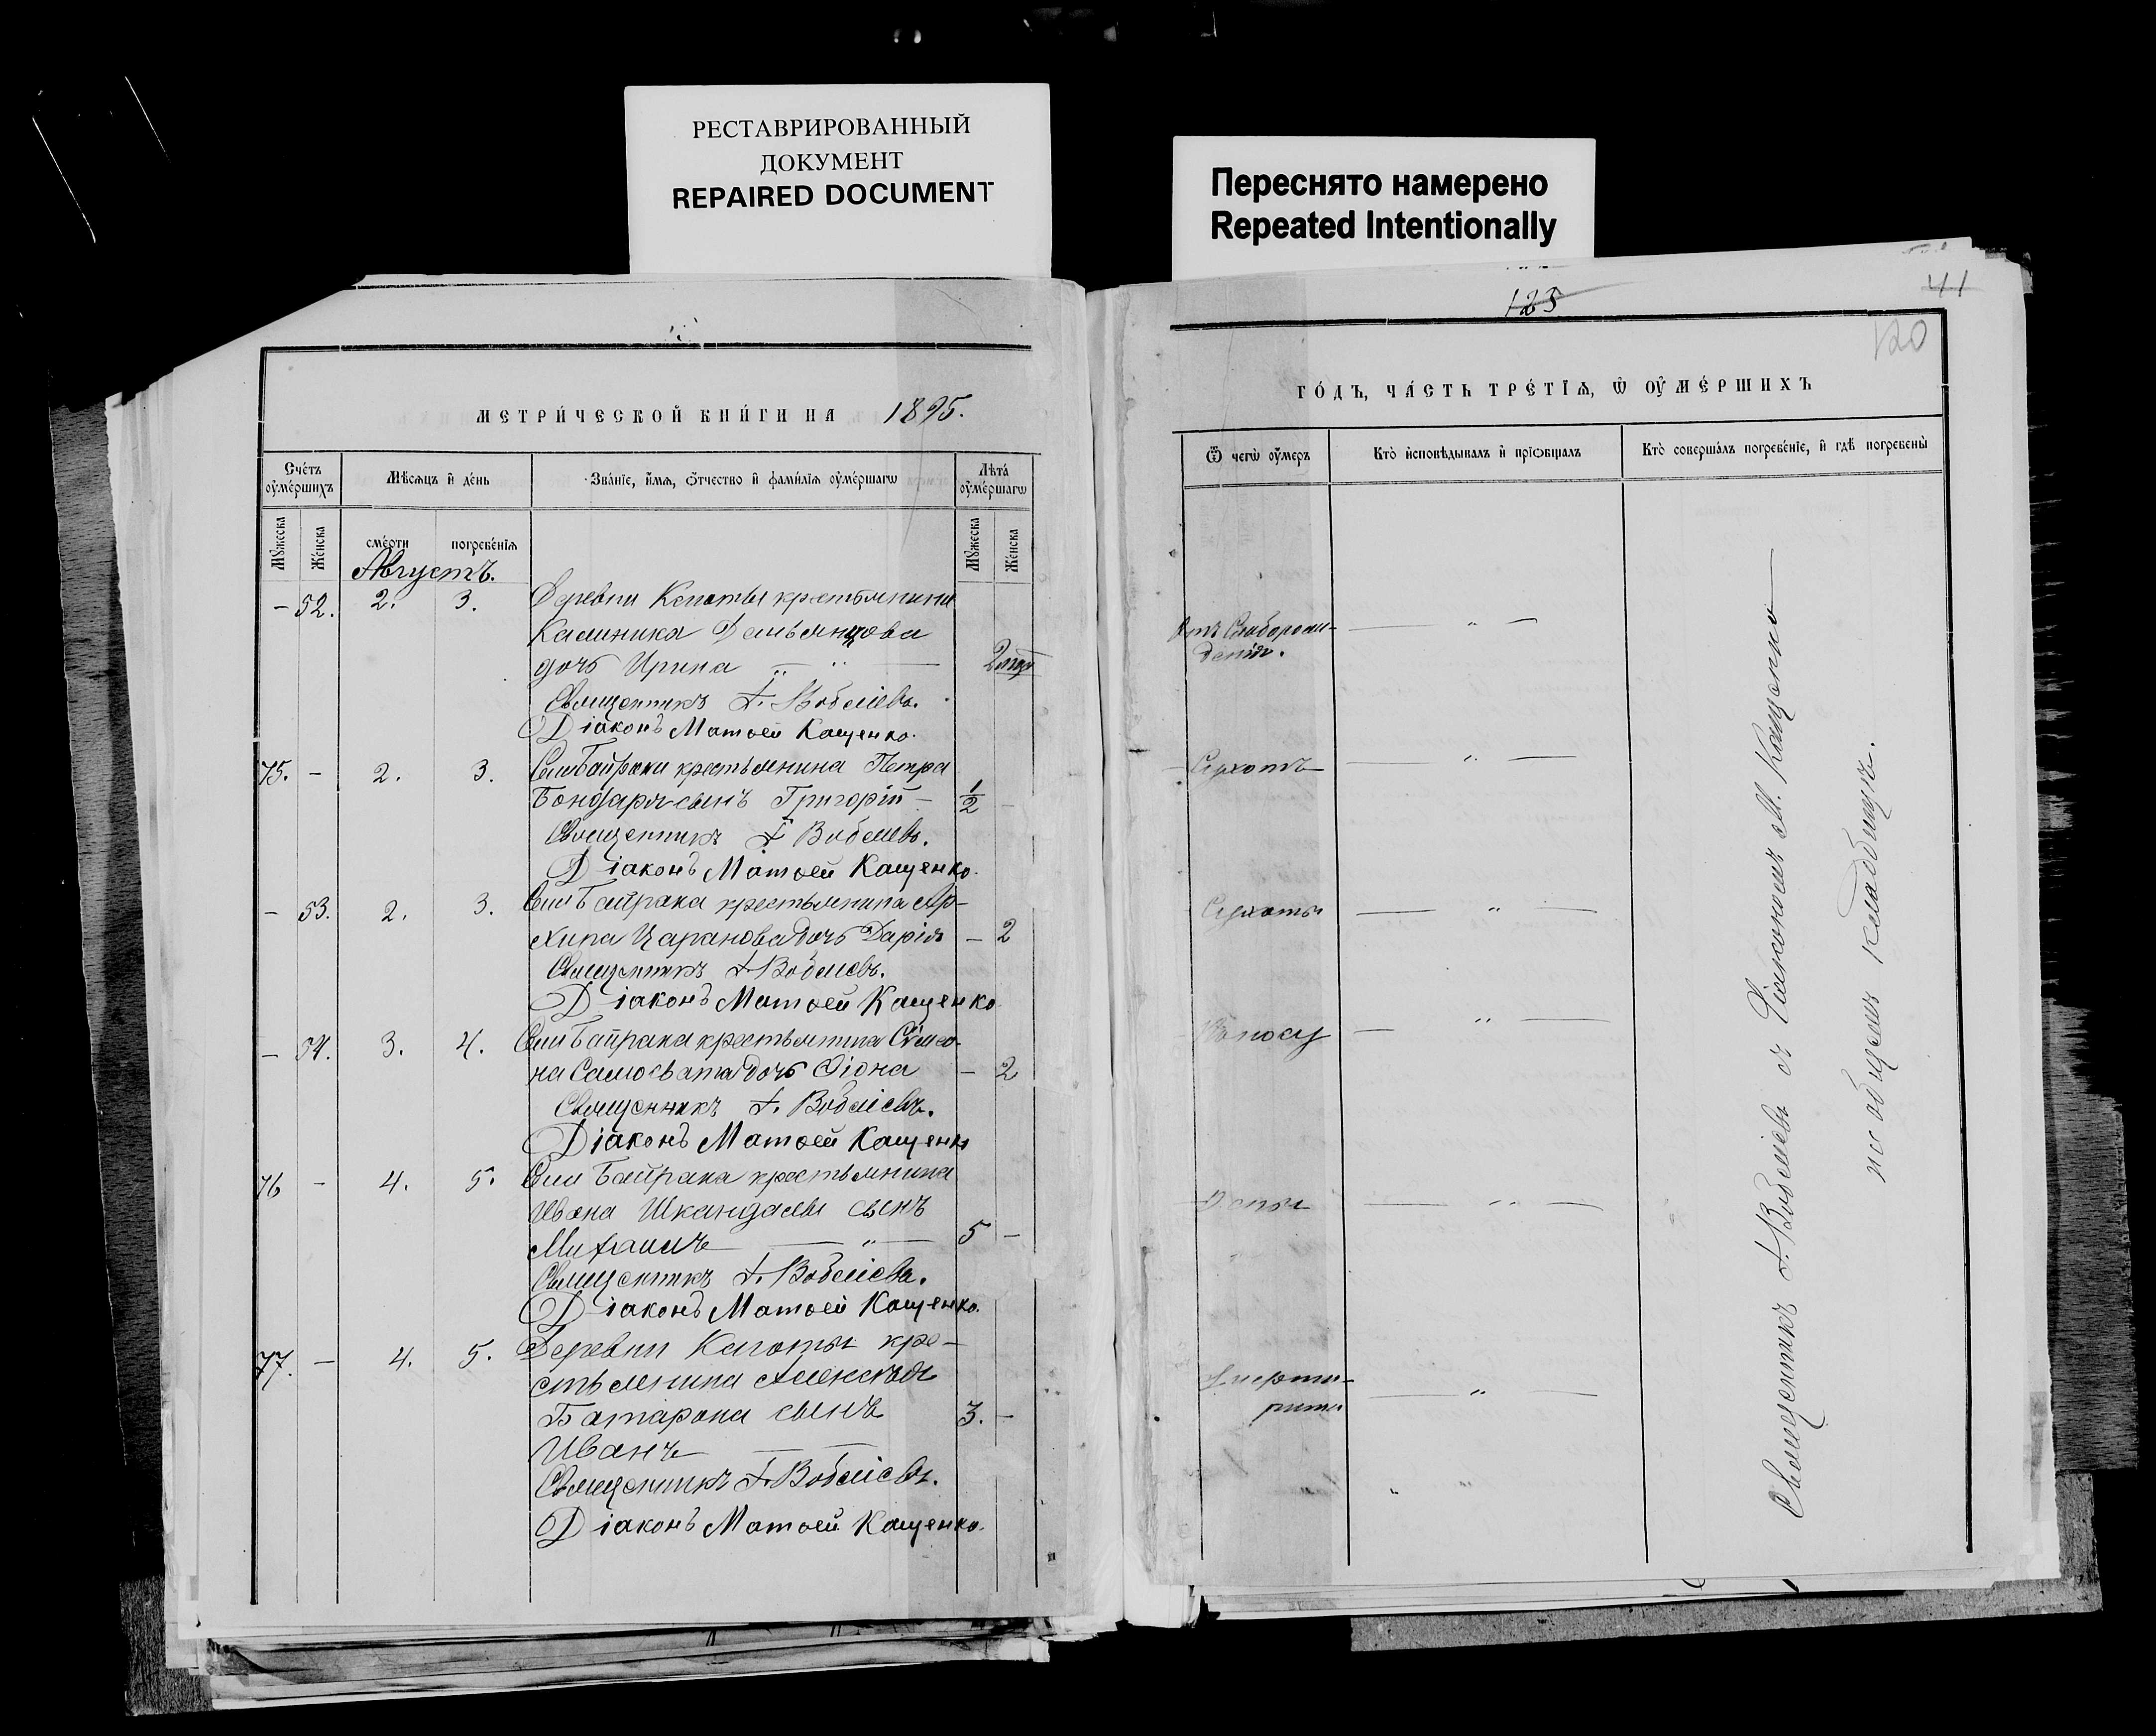 РЕСТАВРИРОВАННЫЙ
ДОКУМЕНТ
REPAIRED DOCUMENT
Переснято намерено
Repeated Intentionally
МЕТРИ́ЧЕСКОЙ КНИ́ГИ НА 1895.
Сче́тъ оу҆ме́ршихъ
Мѣ́сяцъ и҆ де́нь
Зва́нїе, и҆́мѧ, ѻ҆́тчество и҆ фами́лїѧ оу҆ме́ршагѡ
Лѣта̀ оу҆ме́ршагѡ
Мꙋ́жеска
Же́нска
сме́рти
погребе́нїѧ
Мꙋ́жеска
Же́нска
Августъ.
– 52. 2. 3. Деревни Кепоты крестьянина
Калиника Демьянцова
дочь Ирина — " —
Священникъ Ѳ. Вобліевъ.
Діаконъ Матѳей Кащенко.
75. – 2. 3. Села Байраки крестьянина Петра
Бондаря сынъ Григорій – 1/2
Священникъ Ѳ Вобліевъ.
Діаконъ Матѳей Кащенко.
– 53. 2. 3. Села Байрака крестьянина Ар-
хипа Царанова дочь Дарія – 2
Священникъ Ѳ Вобліевъ.
Діаконъ Матѳей Кащенко
– 54. 3. 4. Села Байрака крестьянина Сѵмео-
на Самосвата дочь Ѳіона – 2
Священникъ Ѳ. Вобліевъ.
Діаконъ Матѳей Кащенко
76 – 4. 5. Села Байрака крестьянина
Ивана Шкандалы сынъ
Михаилъ — " — 5 –
Священникъ Ѳ. Вобліевъ.
Діаконъ Матѳей Кащенко.
77. – 4. 5. Деревни Кепоты кре-
стьянина Алексѣя
Батарона сынъ 3. –
Иванъ — —
Священникъ Ѳ. Вобліевъ.
Діаконъ Матѳей Кащенко.
125
41
120
ГО́ДЪ, ЧА́СТЬ ТРЕ́ТЇѦ, Ѡ҆ ОУ҆МЕ́РШИХЪ
Ѿ чегѡ̀ оу҆́меръ
Кто̀ и҆сповѣ́дывалъ и҆ прїѻбща́лъ
Кто̀ соверша́лъ погребе́нїе, и҆ гдѣ̀ погребены̀
Отъ Слаборож-
денія.
— " —
— " —
Сухоты
— " —
— " —
— " —
— " —
Священникъ Ѳ. Вобліевъ съ Діакономъ М. Кащенко
на общемъ кладбищѣ.